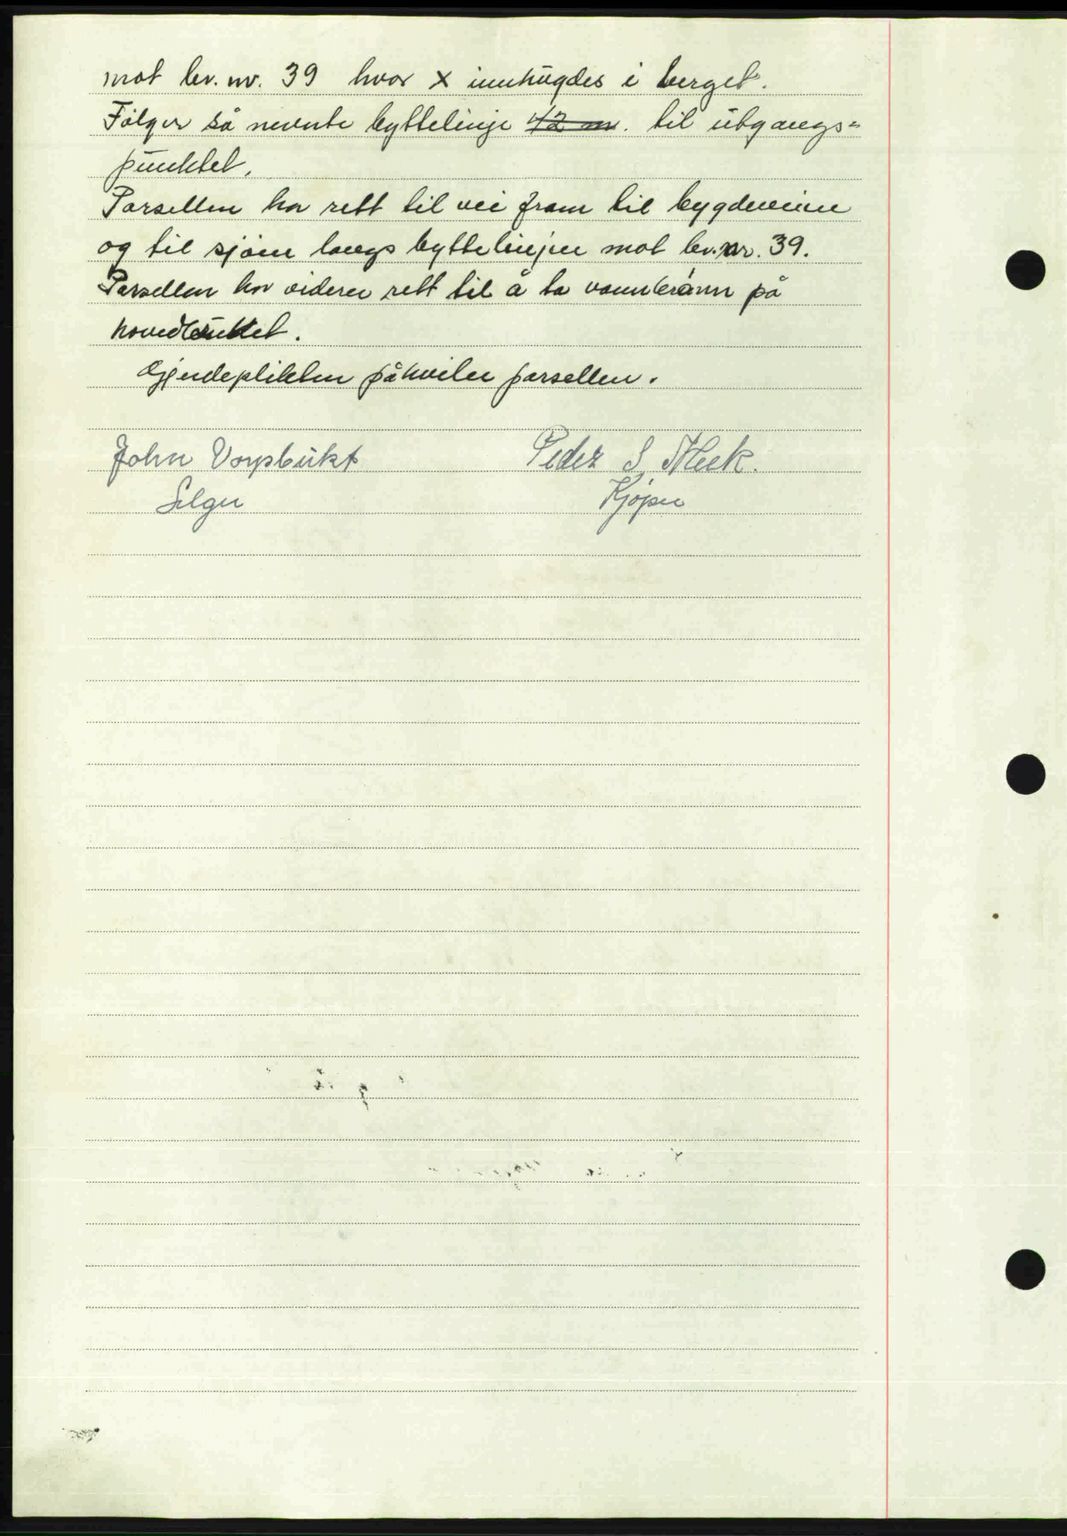 mot br. nr. 39 hvor x innhugdes i berget.
Følger så nevnte byttelinje 42 m. til utgangs=
punktet.
Parsellen har rett til vei fram til bygdeveien
og til sjøen langs byttelinjen mot br. nr. 39.
Parsellen har videre rett til å ta vann brønn på
hovedbruket.
Gjerdeplikten påhviler parsellen.
John Vorpbukt Peder S. Meek.
Selger Kjøper